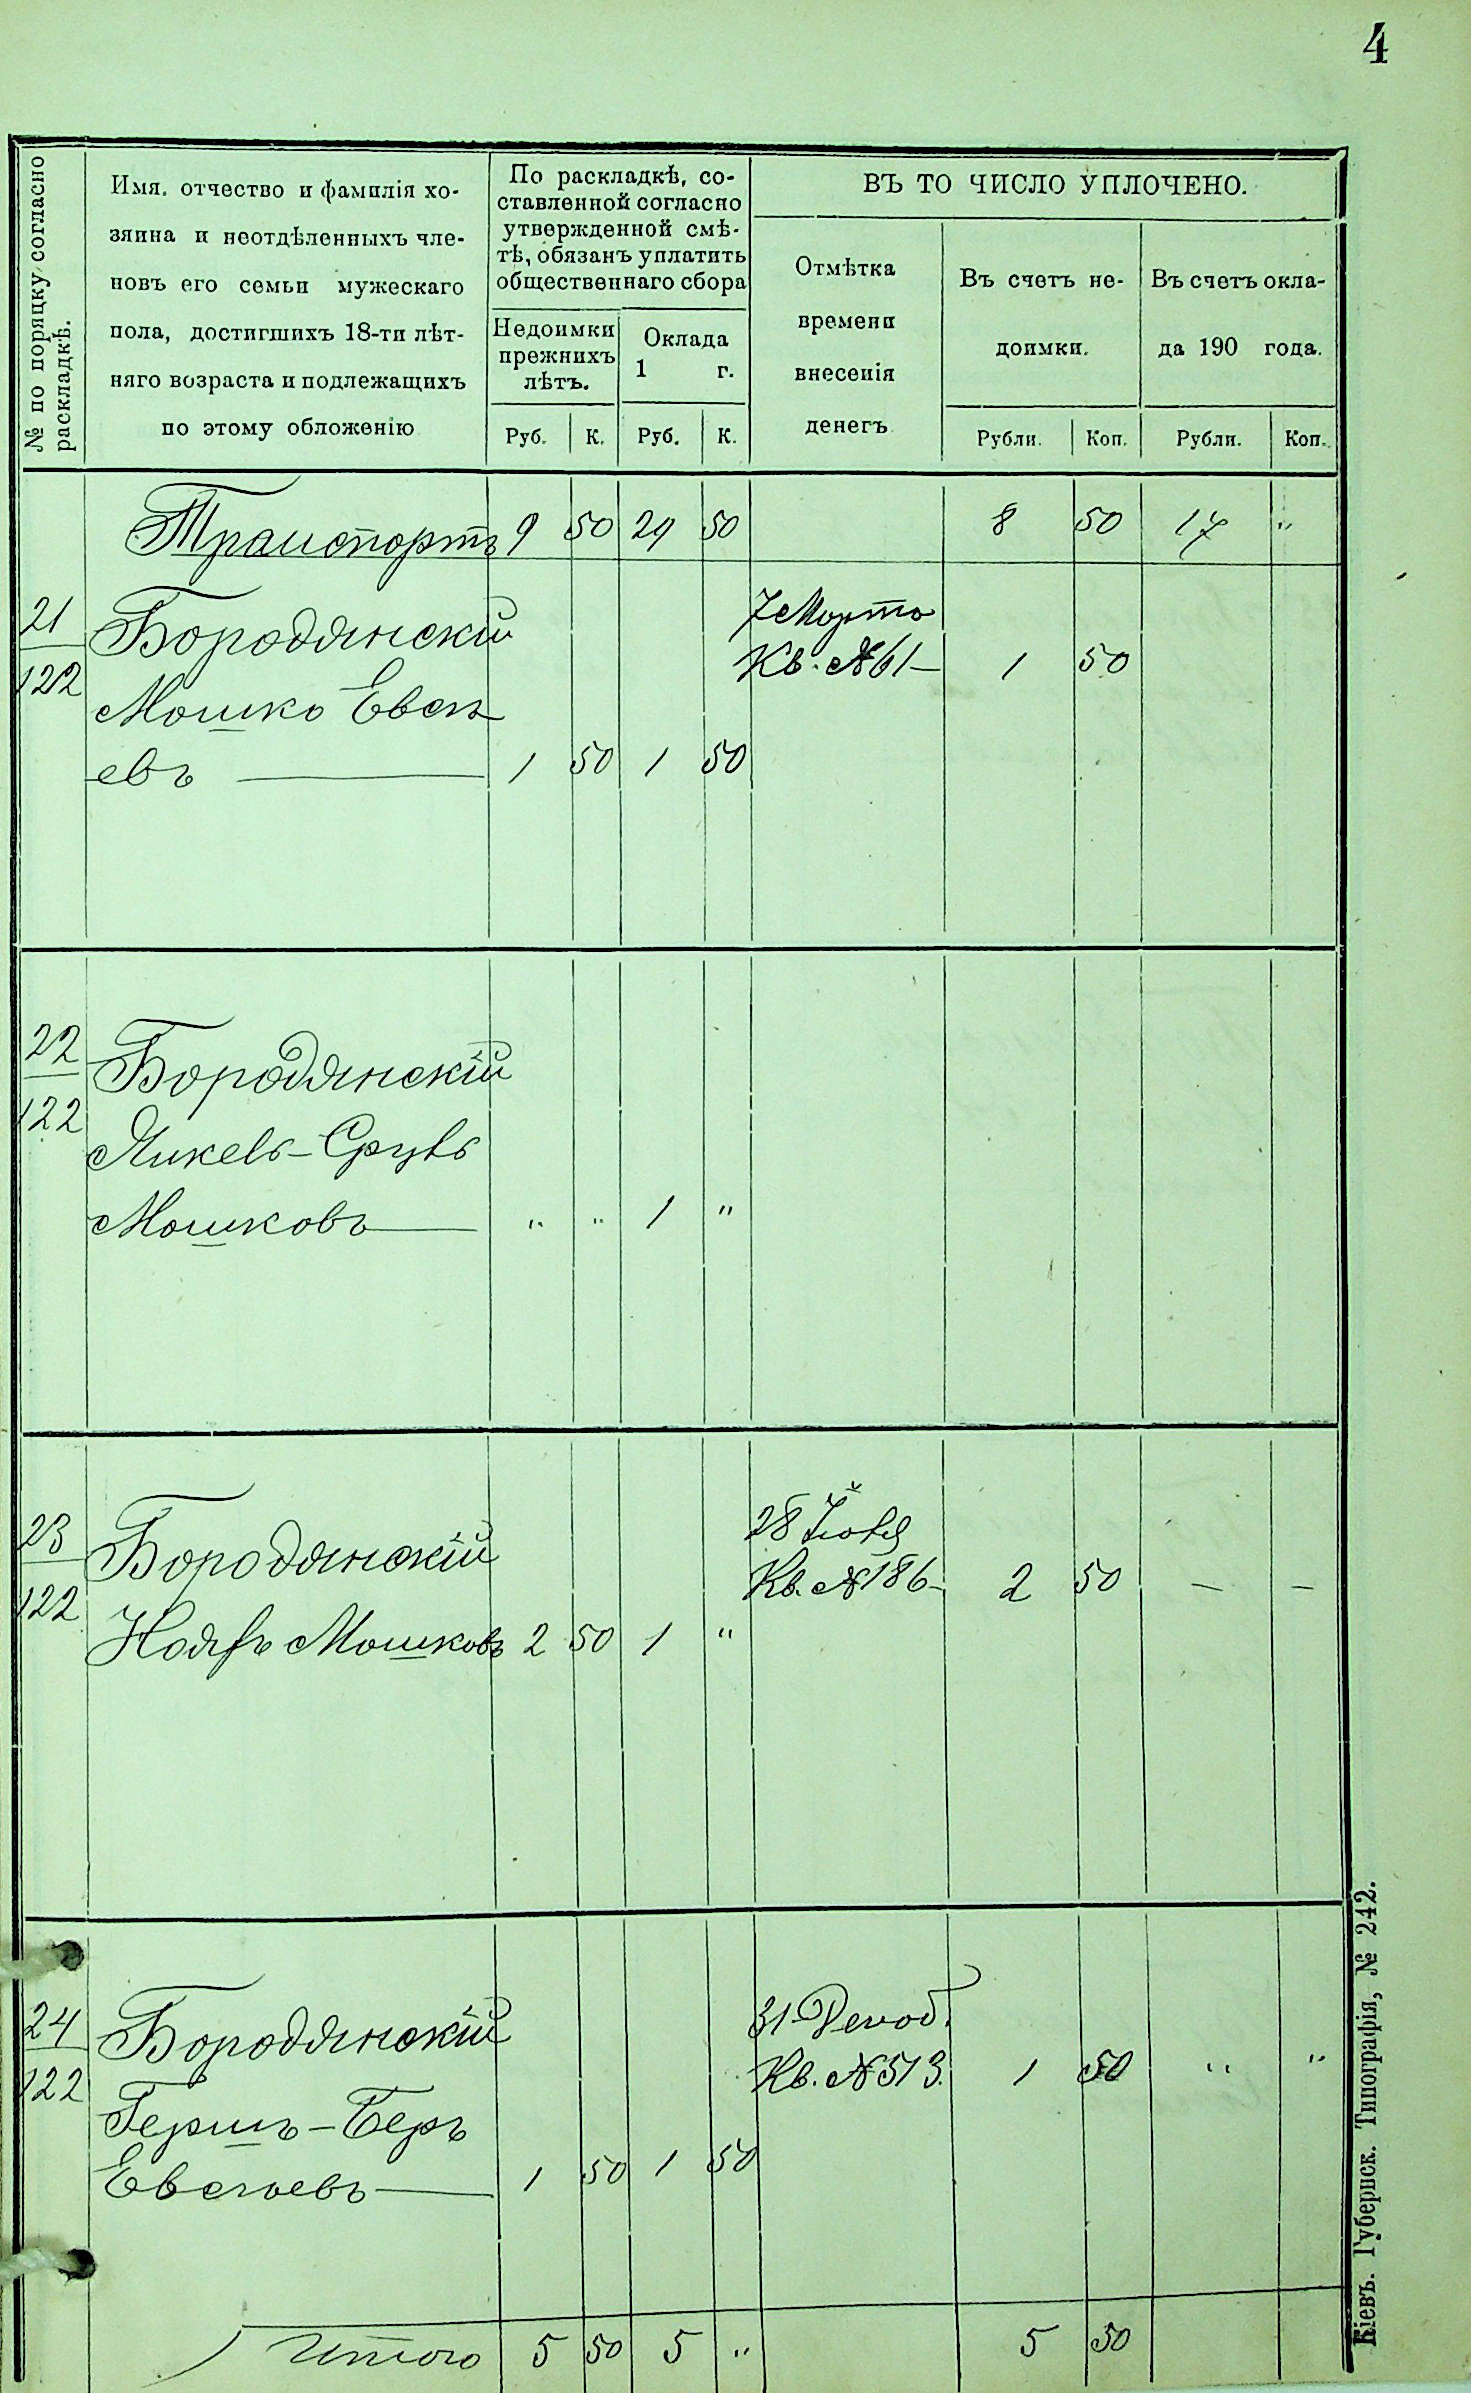 4
№ по поряцку согласно
раскладкѣ.
Имя. отчество и фамилія хо-
зяина и неотдѣленныхъ чле-
новъ его семьи мужескаго
пола, достигшихъ 18-ти лѣт-
няго возраста и подлежащихъ
по этому обложенію
По раскладкѣ, со-
ставленной согласно
утвержденной смѣ-
тѣ, обязанъ уплатить
общественнаго сбора
Недоимки
прежнихъ
лѣтъ.
Оклада
1 г.
Руб. К. Руб. К.
ВЪ ТО ЧИСЛО УПЛОЧЕНО.
Отмѣтка
времени
внесенія
денегъ
Въ счетъ не-
доимки.
Рубли. Коп.
Въ счетъ окла-
да 190 года.
Рубли. Коп.
Транспортъ 9 50 24 50 8 50 17 "
21
122
Бородянскій
Мошко Евсѣ
евъ — 1 50 1 50
7 Марта
Кв. №61— 1 50
22
122
Бородянскій
Янкель-Сруль
Мошковъ — " " 1 "
23
122
Бородянскій
Мошковъ 2 50 1 "
28 Іюля
Кв. №186- 2 50 — —
24
122
Бородянскій
Гершъ-Беръ
Евсѣевъ — 1 50 1 50
31 Декаб.
Кв. №513. 1 50 " "
Итого 5 50 5 " 5 50
Кіевъ. Губернск. Типографія, № 242.